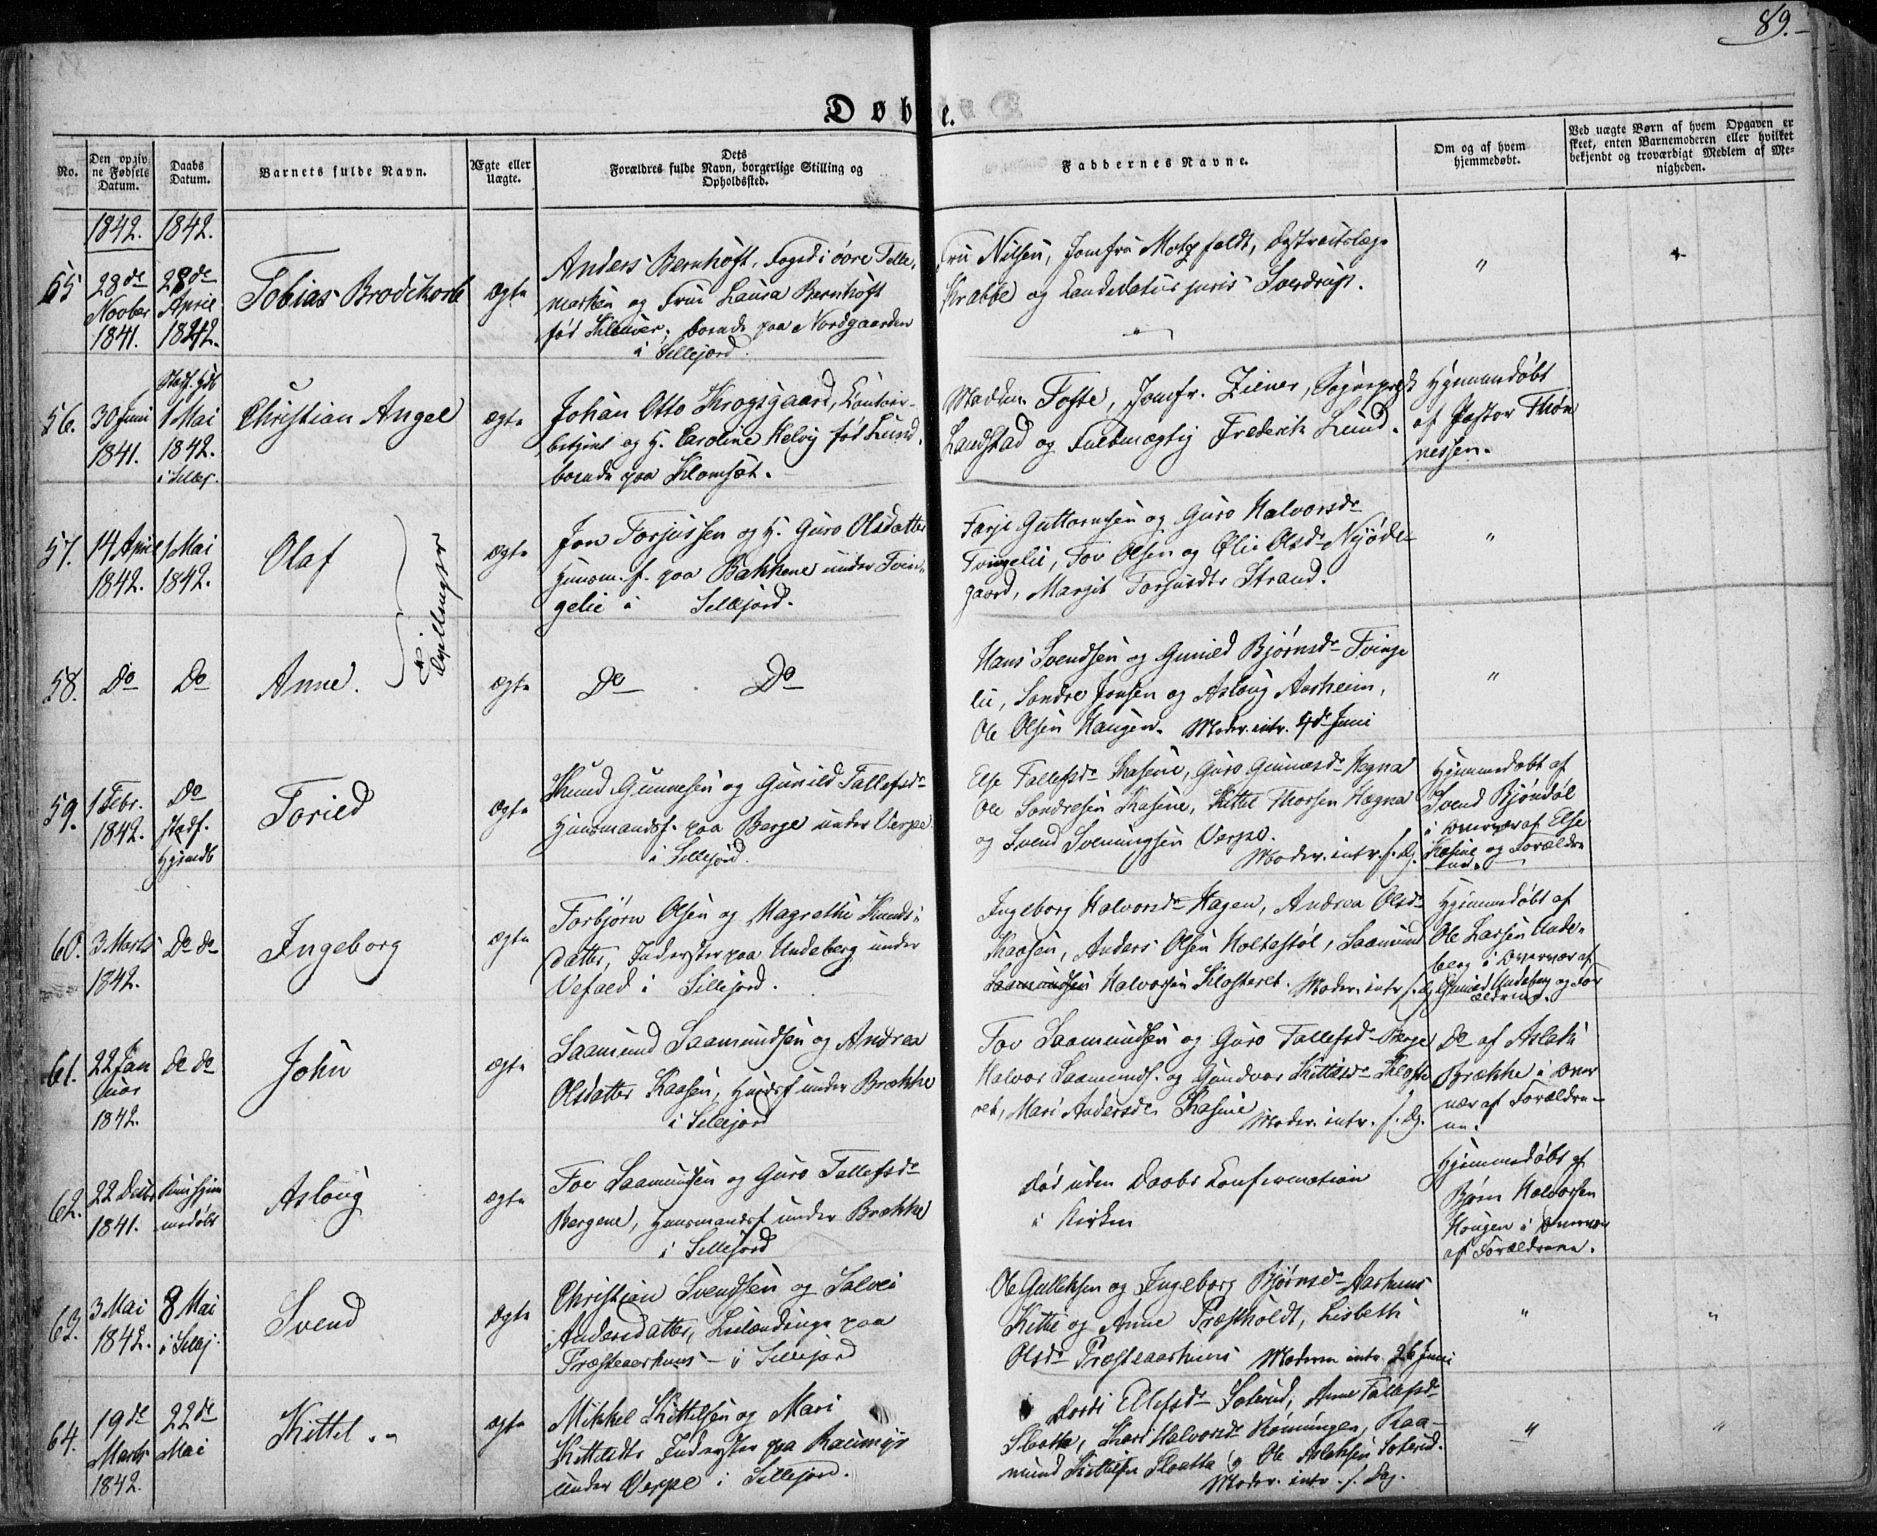 89.
Døbte.
No.
Den opgivne Fødsels Datum.
Daabs Datum.
Barnets fulde Navn.
Ægte eller Uægte.
Dets Forældres fulde Navn, borgerlige Stilling og Opholdssted.
Faddernes Navne.
Om og af hvem hjemmedøbt.
Ved uægte Børn af hvem Opgaven er skeet, enten Barnemoderen eller hvilket bekjendt og troværdigt Medlem af Menigheden.
1842. 1842.
55
28de Novber 1841.
28de April 1842.
Tobias Brodtkorb
ægte
Anders Bernhoft, Foged i övre Telle,
marken og Frue Laura Bernhoft
fød Klouver, boende paa Nordgaarden
i Sillejord.
Fru Nilsen, Jomfru Motzfeldt, Distrectslæge
Krabbe og Candidatus juris Sverdrup.
"
56.
30 Juni 1841.
Stadf. Hdb 1 Mai 1842. i Sillej.
Christian Angel
ægte
Johan Otto Krogsgaard, Contoir-
betjent og H. Caroline Helvig fød Lund,
boende paa Klomset.
Madam Tofte, Jomfr. Ziener, Sogneprest
Landstad og Fuldmægtig Frederik Lund.
Hjemmedøbt
af Pastor Thön
nessen.
57.
14 April 1842.
1 Mai 1842.
Olaf
Tvillinger
ægte
Jon Torjussen og H. Guro Olsdatter
Huusm. f. paa Bakkene under Tvin-
gelie i Sillejord.
Tarje Guttormsen og Guro Halvorsdr
Tvingelie, Tov Olsen og Ølie Olsdr Nyöde-
gaard, Margit Torjusdtr Strand.
"
58.
Do
Do
Anne.
ægte
Do Do
Hans Svendsen og Gunild Bjørnsdr Tvinge
lie, Sondre Jonsen og Asloug Aarheim,
Ole Olsen Haugen. Moder. intr. 4de Juni
"
59.
1 Febr. 1842.
Do Stadf. Hjemdb
Torild
ægte
Knud Gunnesen og Gunild Tallefsdr
Huusmandsf. paa Berge under Verpe
i Sillejord.
Else Tallefsdr Kasine, Guro Gunnesdr Hegna
Ole Sondresen Kasine, Kittel Thorsen Hegna
og Svend Sveningsen Verpe.
Moder. intr. s. Dg.
Hjemmedøbt af
Svend Bjöndöl
i Overvær af Else
Kasine og Forældre
ne.
60.
3. Marts 1842.
Do do
Ingeborg
ægte
Torbjørn Olsen og Magrethe Knuds-
datter, Inderster paa Undeberg under
Vefald i Sillejord.
Ingeborg Halvorsdr Hagen, Andrea Olsdr
Kaasen, Anders Olsen Holtestöl, Saamund
Saamundsen Halvorsen Klosteret. Moder. intr. s. Dg
Hjemmedøbt af
Ole Larsen Unde-
berg i Overvær af
Gunild Undeberg og For
ældrene.
61.
22 Januar 1842.
Do do
John
ægte
Saamund Saamundsen og Andrea
Olsdatter Kaasen, Huusf under Brække
i Sillejord
Tov Saamundsen og Guro Tallefsdr Berge
Halvor Saamunds. og Gundvor Kittilsdr Kloste
ret, Mari Andersdr Kasine
Moder. intr. s. Dg.
Do af Aslak
Brække i Over
vær af Forældre-
ne.
62.
22 Decbr 1841.
Kun hjemmedøbt
Asloug
ægte
Tov Saamunsen og Guro Tallefsdr
Bergene, Huusmandsf under Brække
i Sillejord
Død uden Daabs Confirmation
i Kirken
Hjemmedøbt af
Bjørn Halvorsen
Hougen i Overvær
af Forældrene.
63.
3 Mai 1842.
8 Mai i Sillej.
Svend
ægte
Christian Svendsen og Salvei
Andersdatter, Leilændinge paa
Præsteaarhuus i Sillejord
Ole Gulleksen og Ingeborg Bjørnsdr Aarhuus
Kittel og Anne Præstholdt, Lisbeth
Olsdr Præsteaarhuus Moderen intr. 26 Juni
"
"
64.
19de Marts 1842.
22de Mai
Kittel
ægte
Mikkel Kittelsen og Mari
Kittelsdtr Inderster paa Raumyr
under Verpe i Sillejord.
Dordi Ellefsdr Soterud, Anne Tallefsdr
Sloatta, Kari Halvorsdr Rönningen, Raa-
mund Kittilsen Sloatta og Ole Aslaksen Soterud.
Moder. intr. s. Dag.
"
"